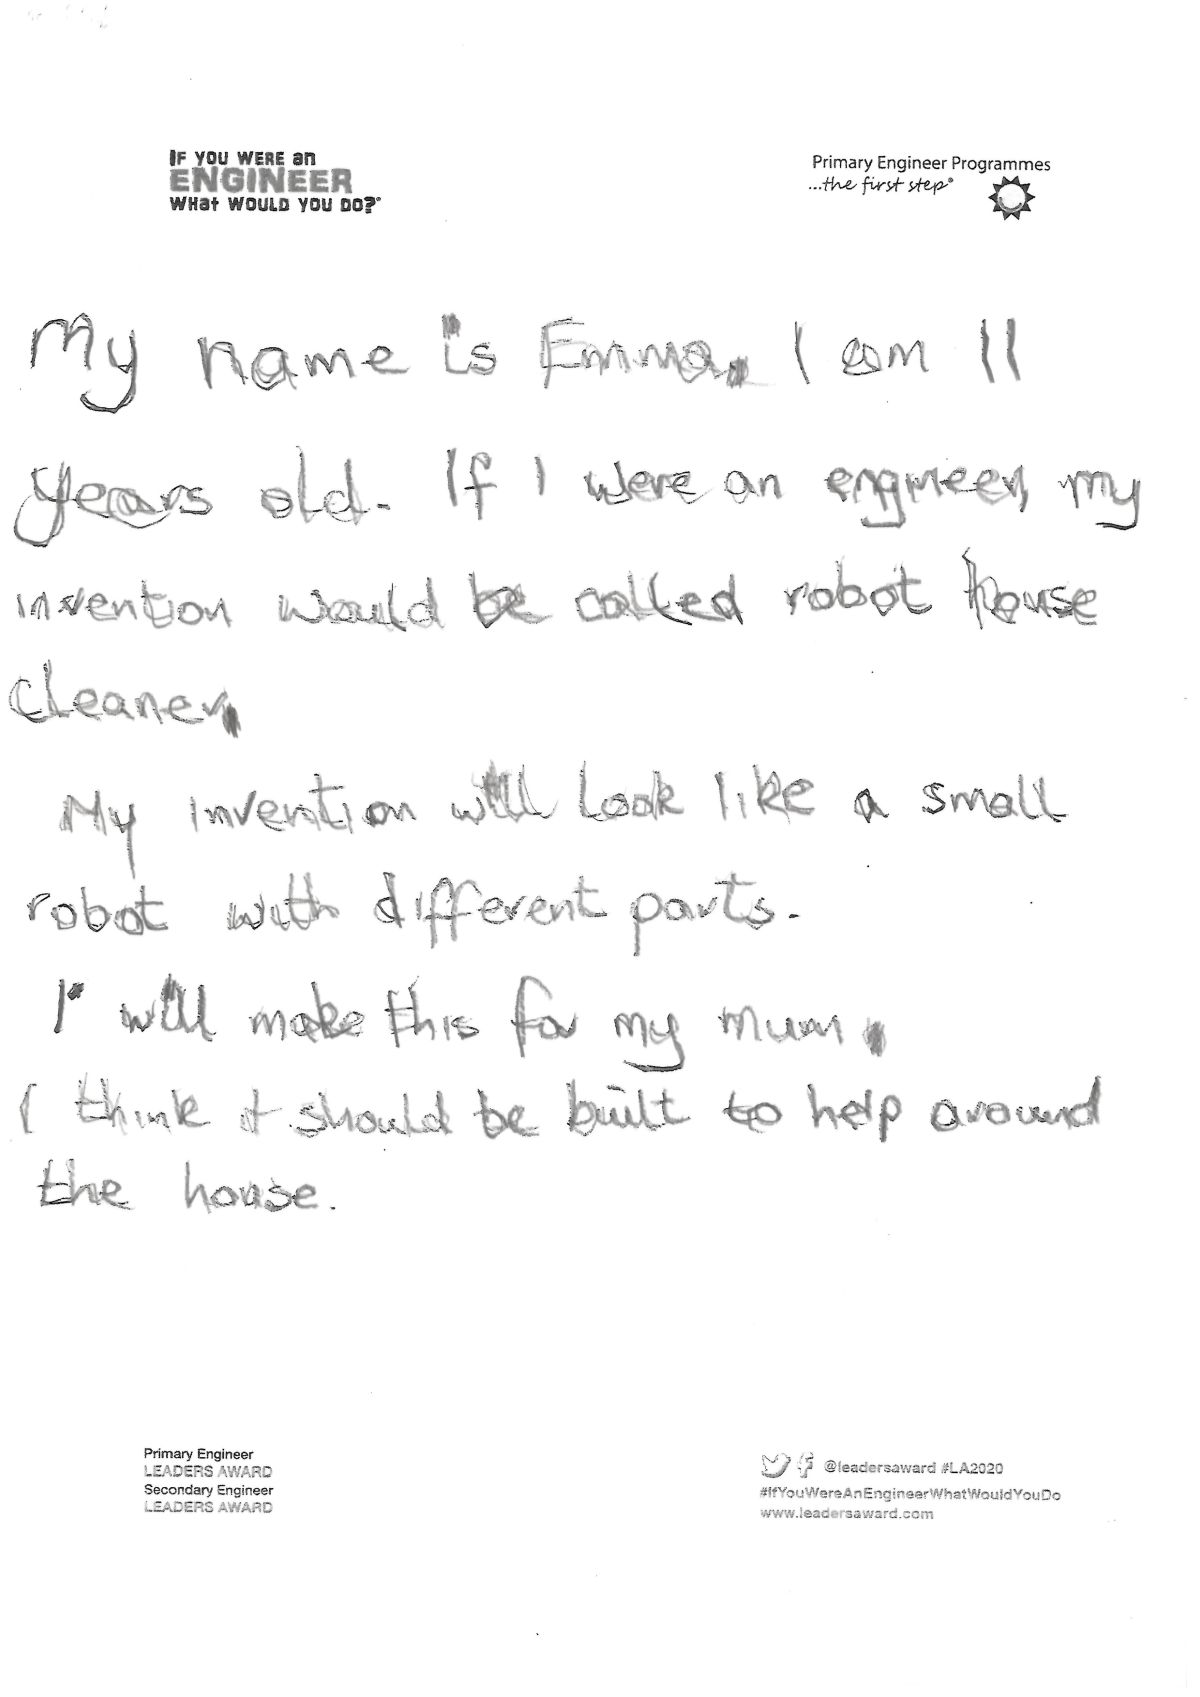 IF YOU WERE an
ENGINEER
WHat WOULD YOU DO?
Primary Engineer Programmes
...the first step
My name is Emma. I am 11
years old. If I were an engineer, my
invention would be called robot house
cleaner.
My invention will look like a small
robot with different parts.
I will make this for my mum.
I think it should be built to help around
the house.
Primary Engineer
LEADERS AWARD
Secondary Engineer
LEADERS AWARD
@leadersaward #LA2020
#IfYouWereAnEngineerWhatWouldYouDo
www.leadersaward.com